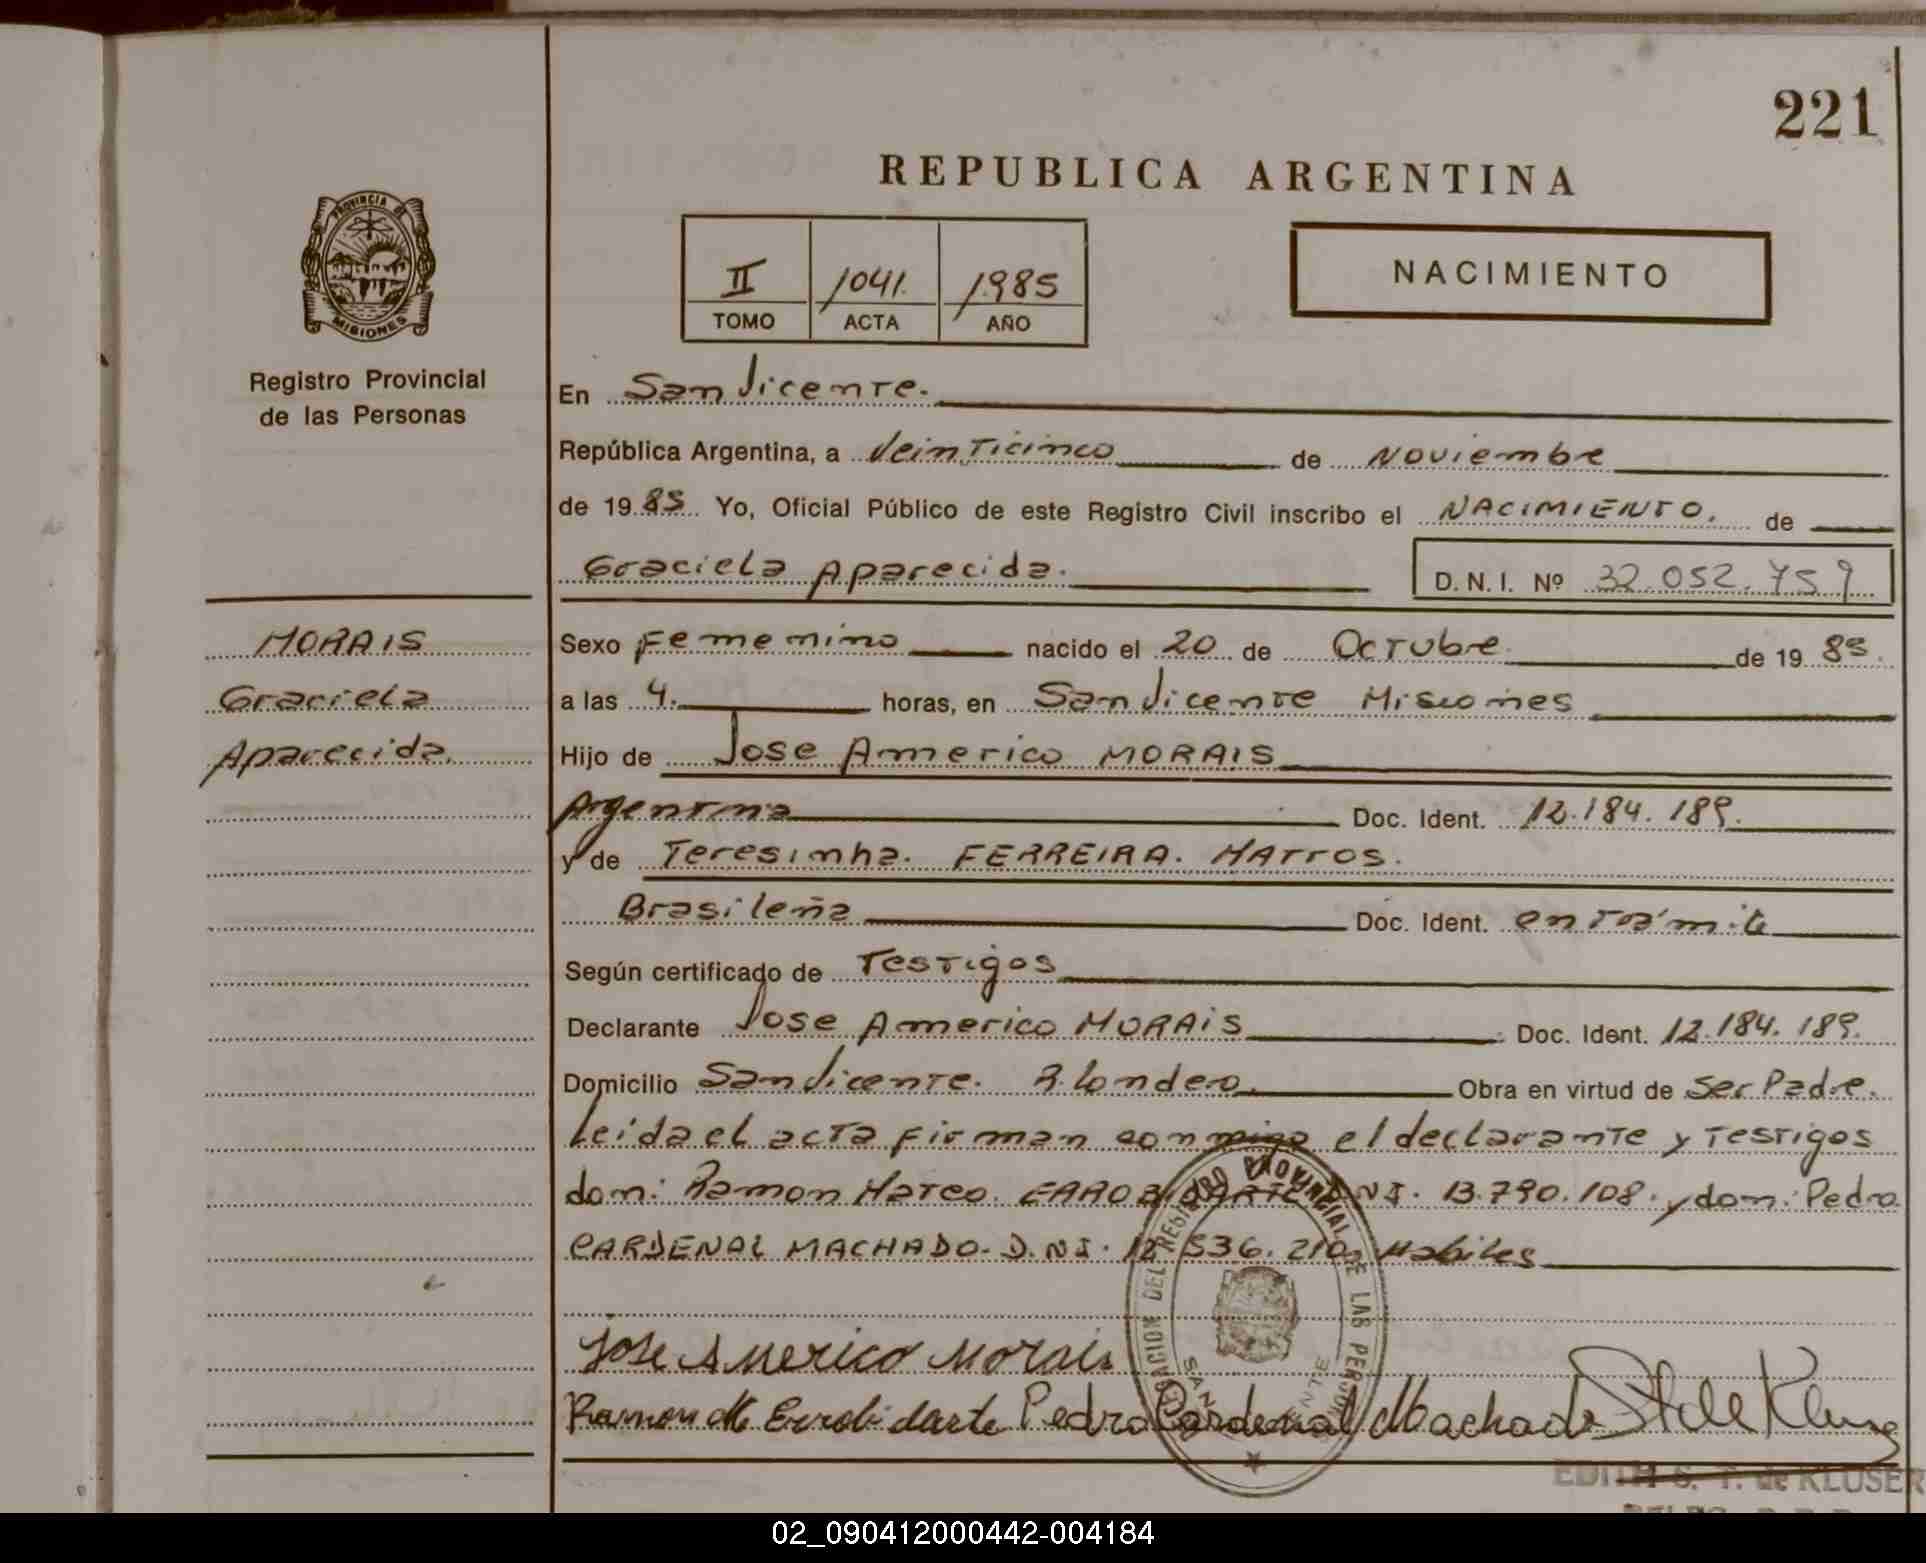 221
REPUBLICA ARGENTINA
PROVINCIA DE
MISIONES
Registro Provincial
de las Personas
II 1041. 1985
TOMO ACTA AÑO
NACIMIENTO
En San Vicente.
República Argentina, a Veinticinco de Noviembre
de 1985 Yo, Oficial Público de este Registro Civil inscribo el NACIMIENTO. de
Graciela Aparecida. D.N.I. Nº 32.052.759
MORAIS
Graciela
Aparecida.
Sexo Femenino nacido el 20 de Octubre de 1985.
a las 4. horas, en San Vicente Misiones
Hijo de Jose Americo MORAIS
Argentina Doc. Ident. 12.184.189.
y de Teresinha. FERREIRA. MATTOS.
Brasileña Doc. Ident. en trámite
Según certificado de Testigos
Declarante Jose Americo MORAIS Doc. Ident. 12.184.189.
Domicilio San Vicente. R. Londero. Obra en virtud de Ser Padre.
Leida el acta firman conmigo el declarante y testigos
don: Ramon Mateo ERROBIDARTE D.N.I. 13.790.108. y don: Pedro
CARDENAL MACHADO. D.N.I. 12.536.210 Habiles
Jose Americo Morais
Ramon M. Errobidarte Pedro Cardenal Machado
DEL REGISTRO PROVINCIAL DE LAS PERSONAS
EDITH S. T. de KLUSER
02_090412000442-004184